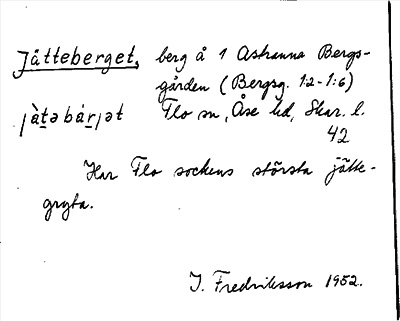 Jätteberget, berg å 1 Askanna Bergs-
gården (Bergsg. 1:2-1:6)
jàtəbárjət Flo sn, Åse hd, Skar. l.
42
Har Flo sockens största jätte-
gryta.
I. Fredriksson 1952.